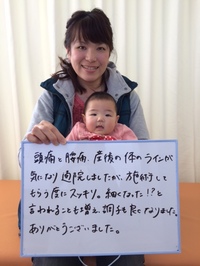 頭痛と腰痛、産後の体のラインが
気になり通院しましたが、施術して
もらう度にスッキリ。細くなった!?と
言われることも増え、調子も良くなりました。
ありがとうございました。